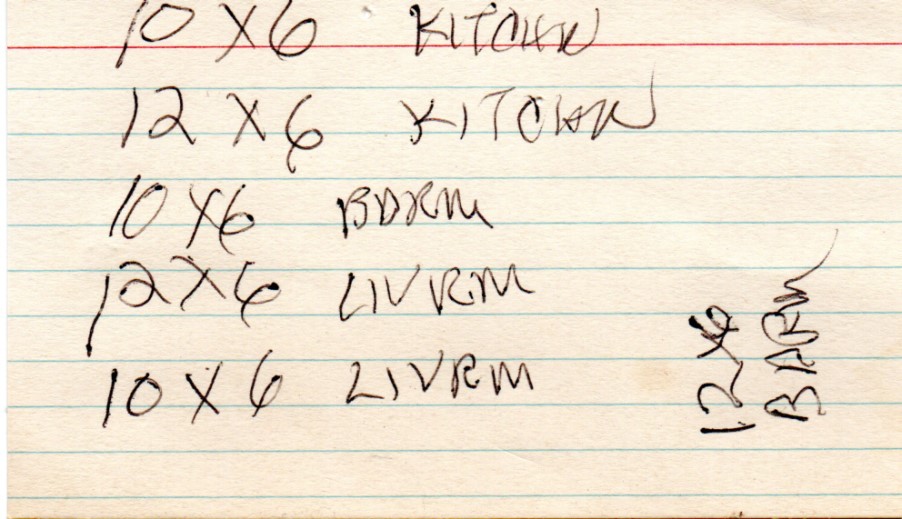 10 X 6 KITCHN
12 X 6 KITCHN
10 X 6 BDRM
12 X 6 LIVRM
10 X 6 LIVRM
12 X 6
BARM